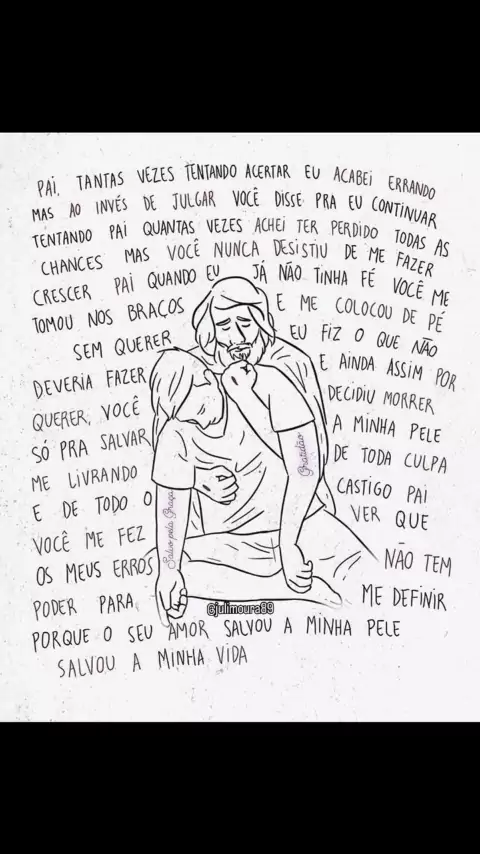 PAI, TANTAS VEZES TENTANDO ACERTAR EU ACABEI ERRANDO
MAS AO INVÉS DE JULGAR VOCÊ DISSE PRA EU CONTINUAR
TENTANDO PAI QUANTAS VEZES ACHEI TER PERDIDO TODAS AS
CHANCES MAS VOCÊ NUNCA DESISTIU DE ME FAZER
CRESCER PAI QUANDO EU JÁ NÃO TINHA FÉ VOCÊ ME
TOMOU NOS BRAÇOS E ME COLOCOU DE PÉ
SEM QUERER EU FIZ O QUE NÃO
DEVERIA FAZER E AINDA ASSIM POR
QUERER, VOCÊ DECIDIU MORRER
SÓ PRA SALVAR A MINHA PELE
ME LIVRANDO DE TODA CULPA
E DE TODO O CASTIGO PAI
VOCÊ ME FEZ VER QUE
OS MEUS ERROS NÃO TEM
PODER PARA ME DEFINIR
PORQUE O SEU AMOR SALVOU A MINHA PELE
SALVOU A MINHA VIDA
Gratidão
Salvo pela Graça
@julimoura89